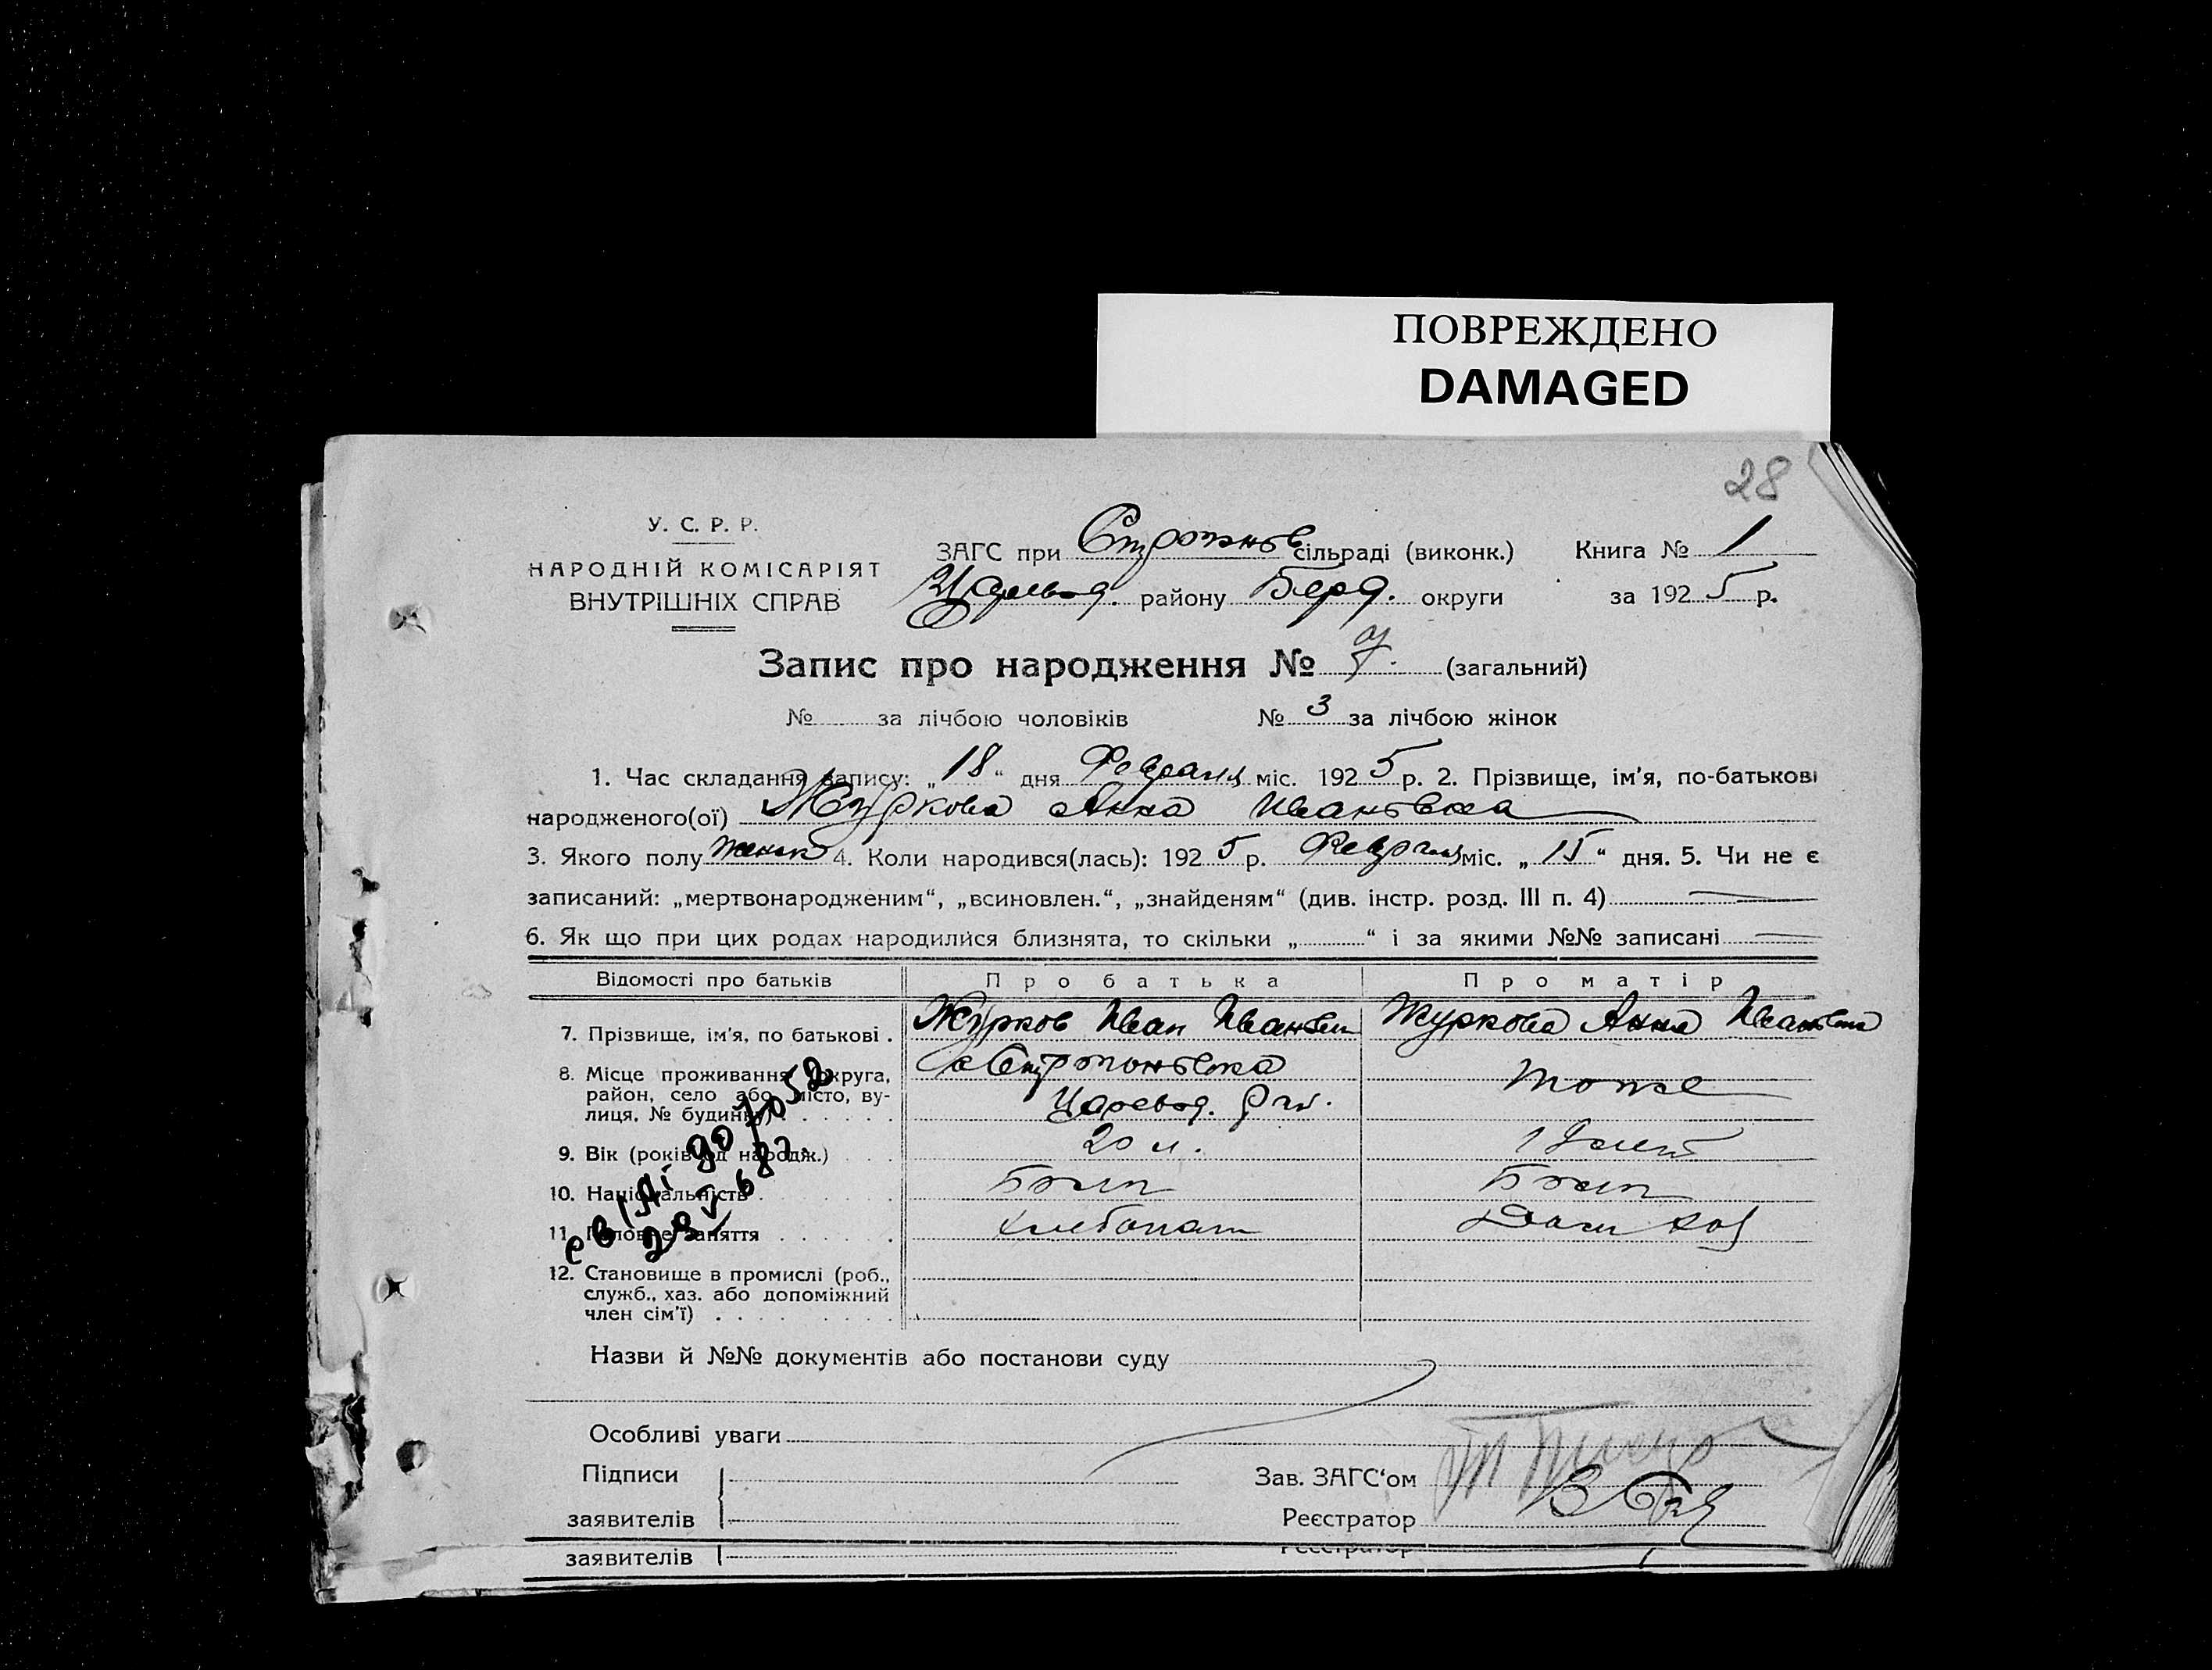 ПОВРЕЖДЕНО
DAMAGED
28
У. С. Р. Р.
НАРОДНІЙ КОМІСАРІЯТ
ВНУТРІШНІХ СПРАВ
ЗАГС при сільраді (виконк.) Книга № 1
району Берд. округи за 1925 р.
Запис про народження № 7. (загальний)
№ за лічбою чоловіків № 3 за лічбою жінок
1. Час складання запису: „18“ дня Февраля міс. 1925 р. 2. Прізвище, ім'я, по-батькові
народженого(ої) Журкова Анна Ивановна
3. Якого полу женск 4. Коли народився(лась): 1925 р. Февраля міс. „15“ дня. 5. Чи не є
записаний: „мертвонародженим“, „всиновлен.“, „знайденям“ (див. інстр. розд. III п. 4)
6. Як що при цих родах народилися близнята, то скільки „ “ і за якими №№ записані
Відомості про батьків Про батька Про матір
7. Прізвище, ім'я, по батькові . Журков Иван Иванович Журкова Анна Ивановна
8. Місце проживання (округа, район, село або місто, вулиця, № будинку) Царевод. тоже
9. Вік (років од народж.) 20 л. 19 лет
10. Національність Болг Болг
11. Головне заняття хлебопаш Дом хоз
12. Становище в промислі (роб.,
служб., хаз. або допоміжний
член сім'ї)
Назви й №№ документів або постанови суду
Особливі уваги
Підписи
заявителів
Зав. ЗАГС‘ом
Реєстратор
заявителів Реєстратор